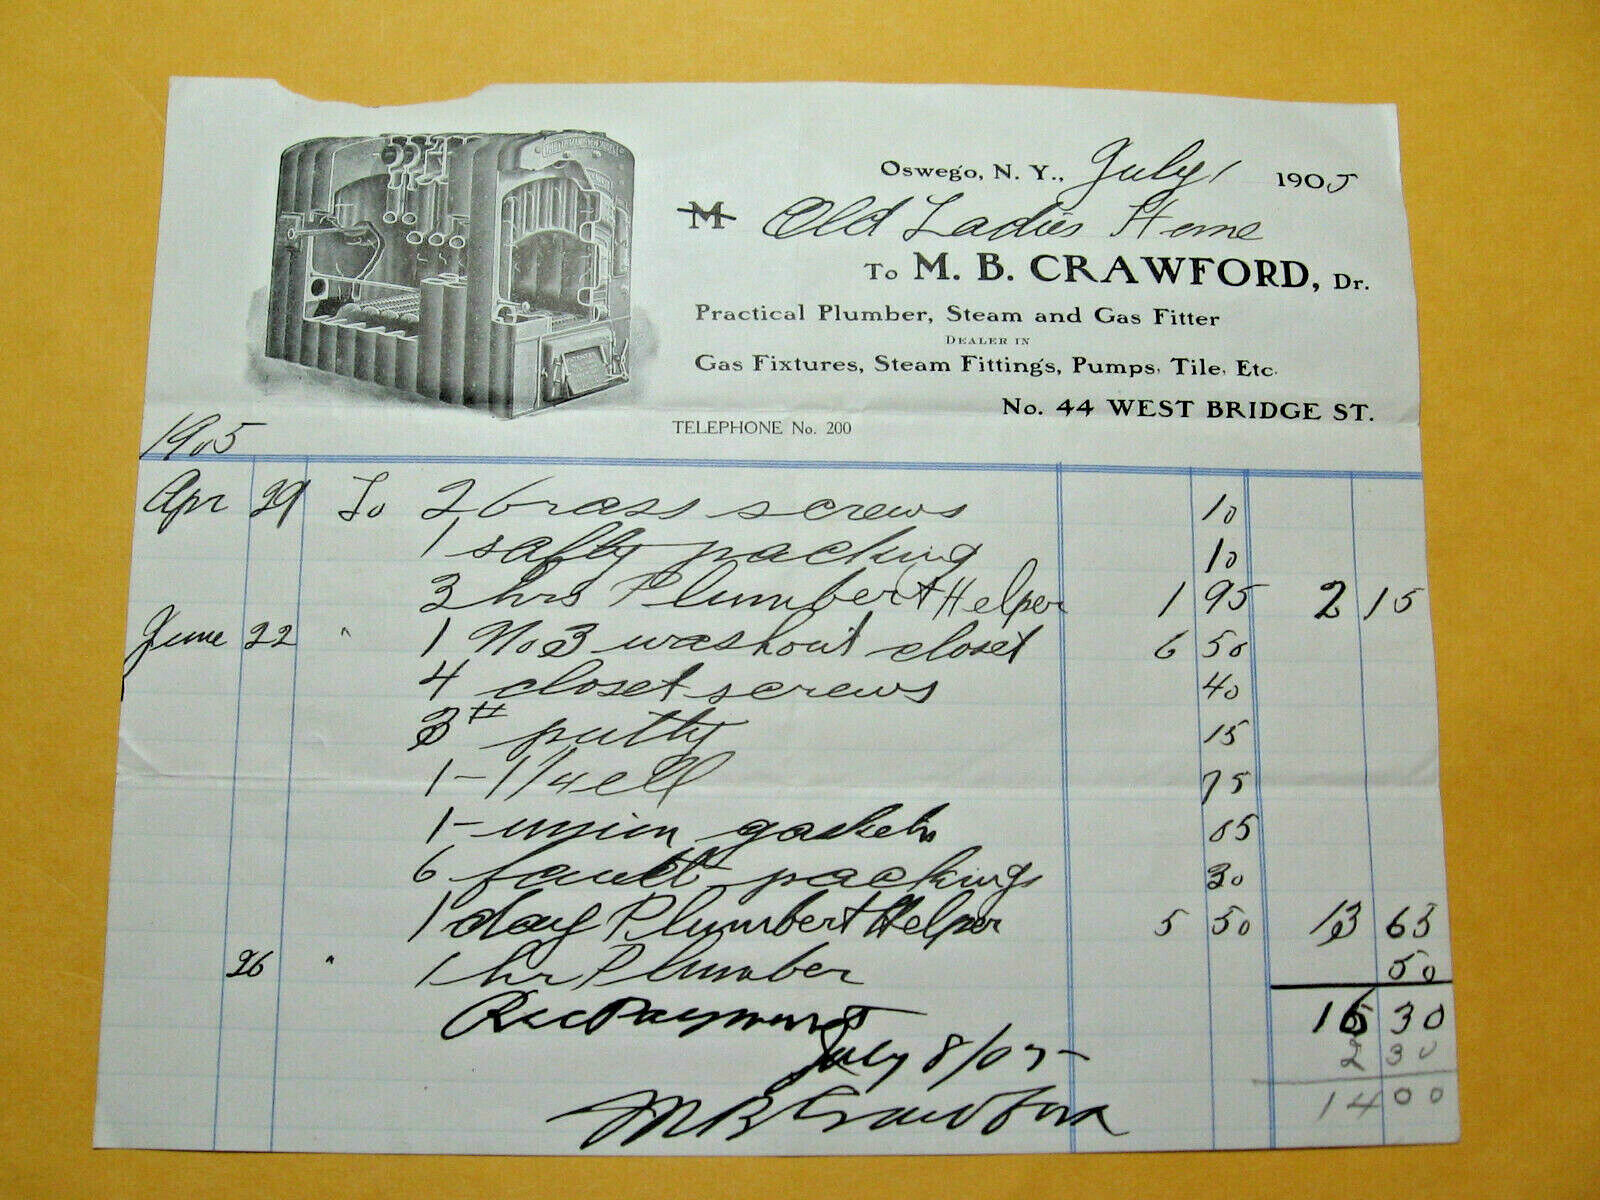 Oswego, N. Y., July 1 1905
M Old Ladies Home
To M. B. CRAWFORD, Dr.
Practical Plumber, Steam and Gas Fitter
DEALER IN
Gas Fixtures, Steam Fittings, Pumps, Tile, Etc.
No. 44 WEST BRIDGE ST.
TELEPHONE No. 200
1905
Apr 29 To 2 brass screws 10
1 safty packing 10
3 hrs Plumber & Helper 1 95 2 15
June 22 " 1 No 3 washout closet 6 50
4 closet screws 40
3 # putty 15
1 - 1/4 ell 75
1 - union gaskets 05
6 packings 30
1 day Plumber & Helper 5 50 13 65
26 " 1 hr Plumber 50
Rec Payment 16 30
July 8/05 2 30
M B Crawford 14 00